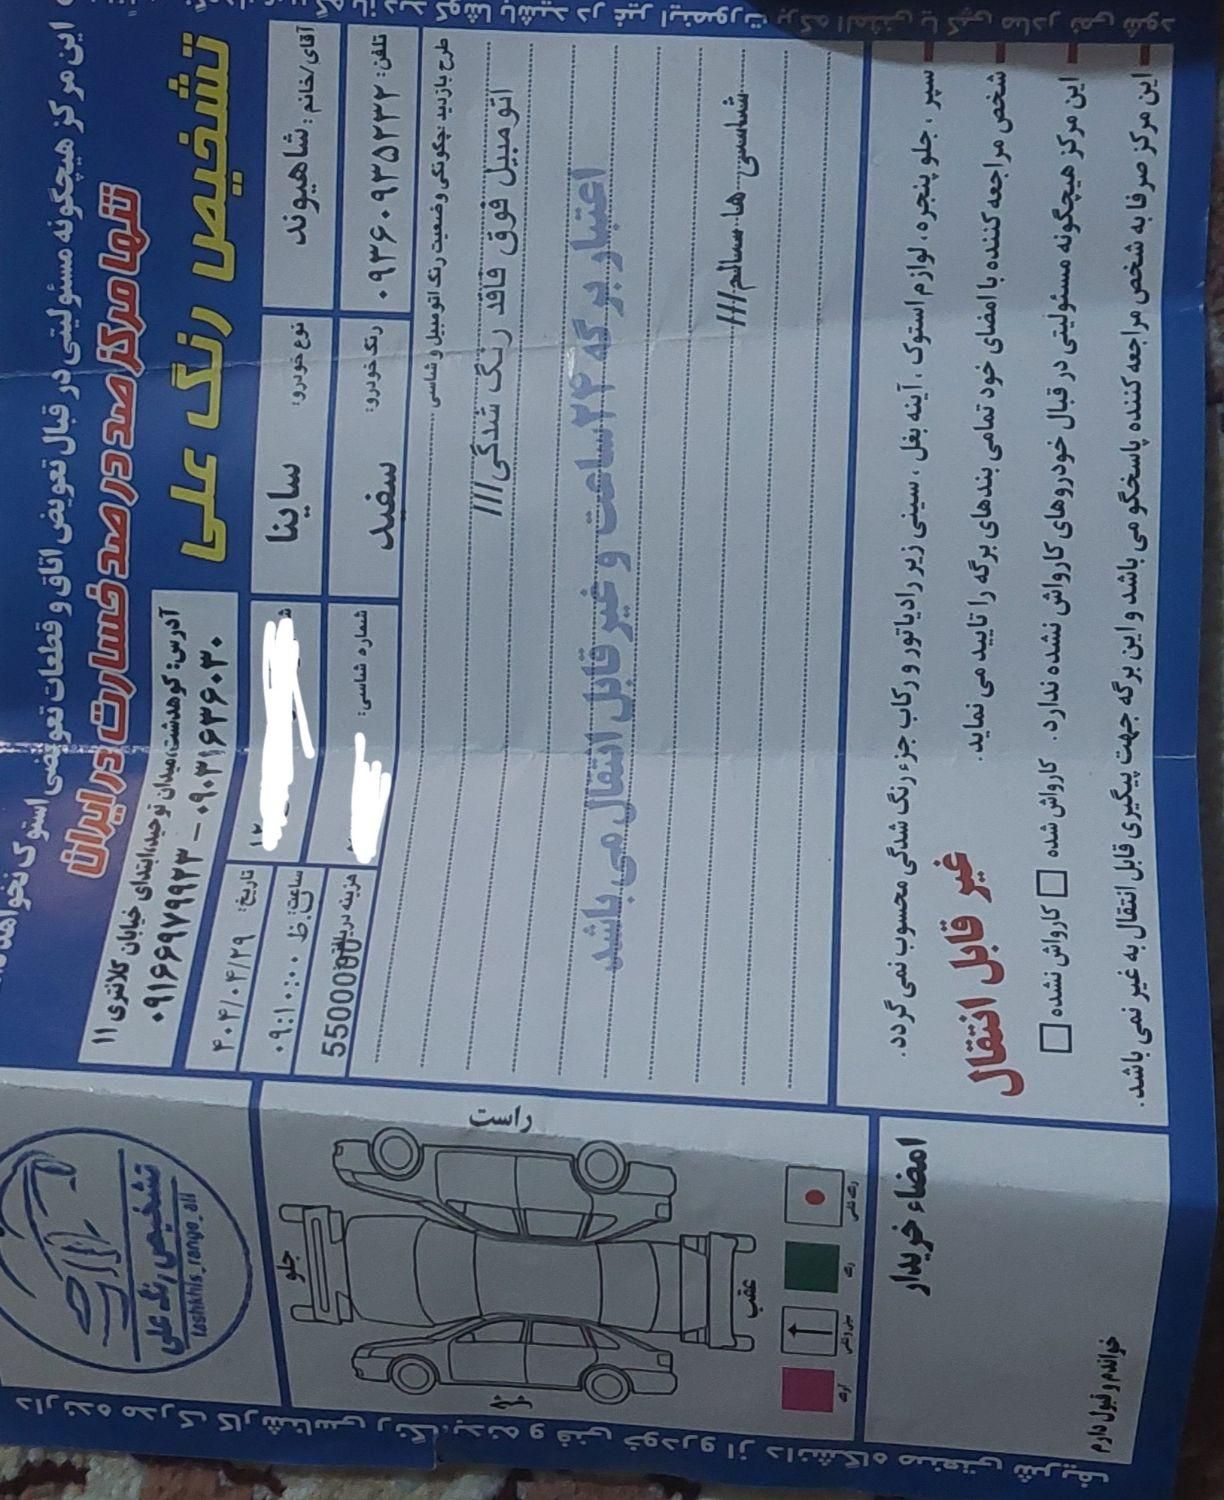 این مرکز هیچگونه مسئولیتی در قبال تعویض اتاق و قطعات تعویضی استوک نخواهد
تنها مرکز صد در صد خسارت در ایران
تشخیص رنگ علی
آدرس: کوهدشت، میدان توحید، ابتدای خیابان کلانتری ۱۱
۰۹۱۶۶۹۷۹۹۲۳ - ۰۹۰۳۱۶۳۶۰۳۰
تشخیص رنگ علی
tashkhis_range_ali
آقای/خانم: شاهیوند
نوع خودرو: ساینا
تاریخ: ۴۰۴/۰۴/۲۹
تلفن: ۰۹۳۶۰۹۳۵۲۳۲
رنگ خودرو: سفید
شماره شاسی:
ساعت: ۰۹:۱۰:۰۰ ظ
هزینه
طرح بازدید چگونگی وضعیت رنگ اتومبیل و شاسی
اتومبیل فوق فاقد رنگ شدگی///
اعتبار برگه ۲۴ ساعت و غیر قابل انتقال می باشد
شاسی ها سالم///
راست
جلو
عقب
سپر، جلو پنجره، لوازم استوک، آینه بغل، سینی زیر رادیاتور و رکاب جزء رنگ شدگی محسوب نمی گردد.
شخص مراجعه کننده با امضای خود تمامی بندهای برگه را تایید می نماید.
غیر قابل انتقال
این مرکز هیچگونه مسئولیتی در قبال خودروهای کارواش نشده ندارد. کارواش شده کارواش نشده
این مرکز صرفا به شخص مراجعه کننده پاسخگو می باشد و این برگه جهت پیگیری قابل انتقال به غیر نمی باشد.
امضاء خریدار
خواندم و قبول دارم
دارنده مدرک کارشناسی رنگ، بدنه و فنی خودرو از دانشگاه صنعتی شریف